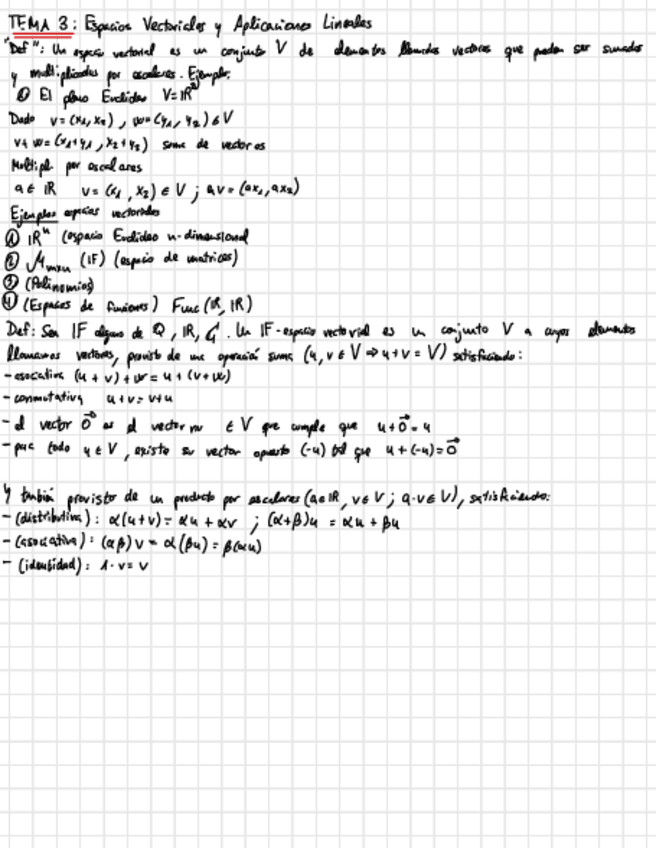 TEMA 3: Espacios Vectoriales y Aplicaciones Lineales
"Def": Un espacio vectorial es un conjunto V de elementos llamados vectores que pueden ser sumados
y multiplicados por escalares. Ejemplo:
① El plano Euclideo V=ℝ²
Dado v=(x₁,x₂), w=(y₁,y₂)∈V
v+w=(x₁+y₁,x₂+y₂) suma de vectores
Multipl. por escalares
a∈ℝ v=(x₁,x₂)∈V; av=(ax₁,ax₂)
Ejemplos espacios vectoriales
① ℝⁿ (espacio Euclideo n-dimensional
② ℳₘₓₙ (𝔽) (espacio de matrices)
③ (Polinomios)
④ (Espacios de funciones) Func(ℝ,ℝ)
Def: Sea 𝔽 alguno de ℚ, ℝ, ℂ. Un 𝔽-espacio vectorial es un conjunto V a cuyos elementos
llamamos vectores, provisto de una operación suma (u,v∈V⇒u+v=V) satisfaciendo:
-asociativa (u+v)+w=u+(v+w)
-conmutativa u+v=v+u
-el vector 0⃗ es el vector ∈V que cumple que u+0⃗=u
-para todo u∈V, existe su vector opuesto (-u) tal que u+(-u)=0⃗
Y también provisto de un producto por escalares (a∈ℝ, v∈V; a·v∈V), satisfaciendo:
-(distributiva): α(u+v)=αu+αv ; (α+β)u=αu+βu
-(asociativa): (αβ)v=α(βu)=β(αu)
-(identidad): 1·v=v